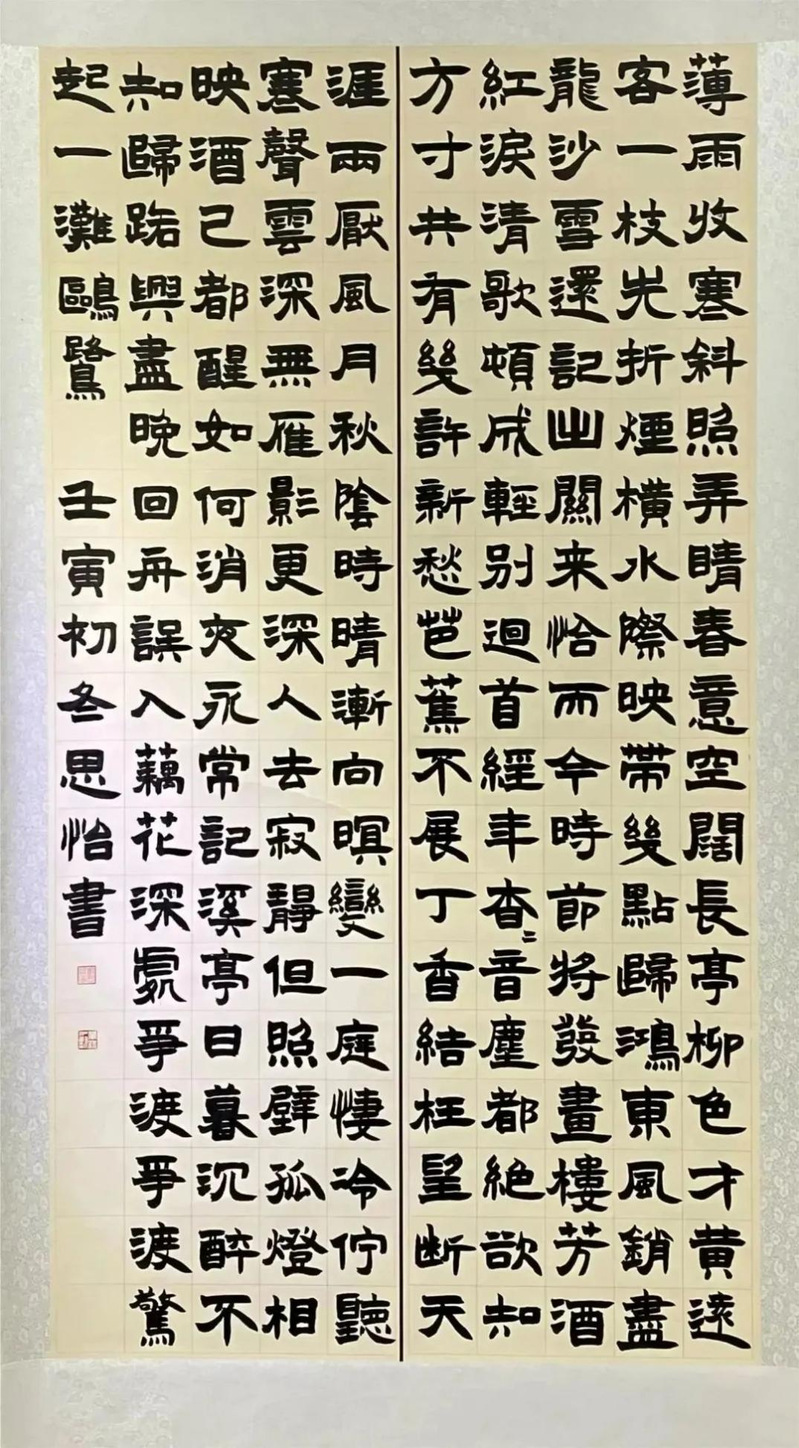 薄雨收寒斜照弄晴春意空闊長亭柳色才黄遠
客一枝先折煙橫水際映帶幾點歸鴻東風銷盡
龍沙雪還記出關来恰而今時節將發畫樓芳酒
紅淚清歌頓成輕别迴首經年杳〻音塵都絶欲知
方寸共有幾許新愁芭蕉不展丁香結枉望断天
涯兩厭風月秋陰時晴漸向暝變一庭悽冷佇聽
寒聲雲深無雁影更深人去寂靜但照壁孤燈相
映酒已都醒如何消夜永常記溪亭日暮沉醉不
知歸路興盡晚回舟誤入藕花深處爭渡爭渡驚
起一灘鷗鷺 壬寅初冬思怡書